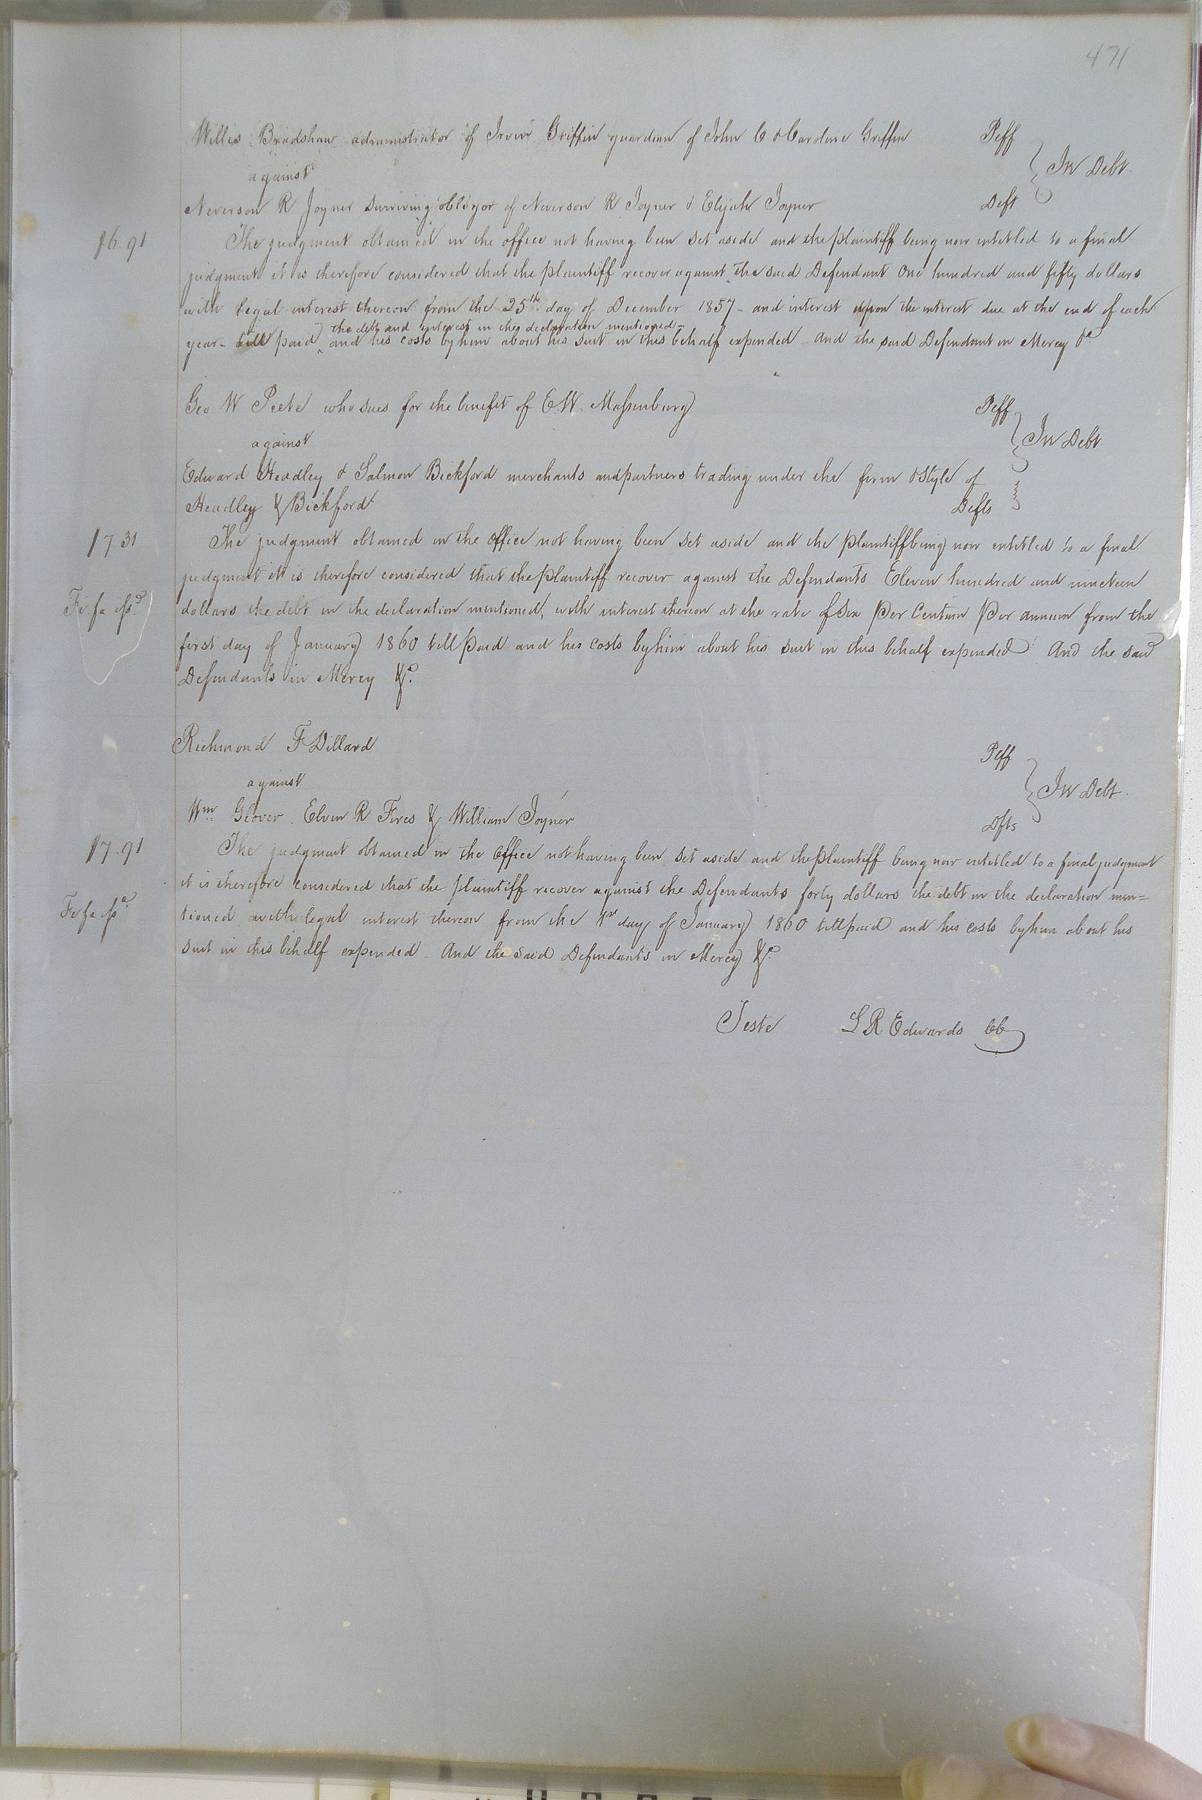 471
Willis Bradshaw administrator of Irvin Griffin guardian of John C & Caroline Griffin Plff
against In Debt
Neverson R Joyner surviving obligor of Neverson R Joyner & Elijah Joyner Deft
16.91 The judgment obtained in the office not having been set aside and the plaintiff being now entitled to a final
judgment it is therefore considered that the plaintiff recover against the said Defendant One hundred and fifty dollars
with legal interest thereon from the 25th day of December 1857 - and interest upon the interest due at the end of each
the debt and interest in the declaration mentioned -
year - till paid and his costs by him about his suit in this behalf expended - And the said Defendant in Mercy &c
Geo W Peete who sues for the benefit of E W. Massenburg Plff
against In Debt
Edward Headley & Salmon Bickford merchants and partners trading under the firm & Style of
Headley & Bickford Defts
17 31 The judgment obtained in the office not having been set aside and the plaintiff being now entitled to a final
judgment it is therefore considered that the plaintiff recover against the Defendants Eleven hundred and nineteen
Fi fa isd dollars the debt in the declaration mentioned, with interest thereon at the rate of six per Centum per annum from the
first day of January 1860 till paid and his costs by him about his suit in this behalf expended And the said
Defendants in Mercy &c.
Richmond F Dillard Plff
against In Debt.
Wm Glover. Elvin R Fires & William Joyner Dfts
17.91 The judgment obtained in the office not having been set aside and the plaintiff being now entitled to a final judgment
it is therefore considered that the plaintiff recover against the Defendants forty dollars the debt in the declaration men=
Fi fa isd tioned with legal interest thereon from the 1st day of January 1860 till paid and his costs by him about his
suit in this behalf expended. And the said Defendants in Mercy &c
Teste L R Edwards CC